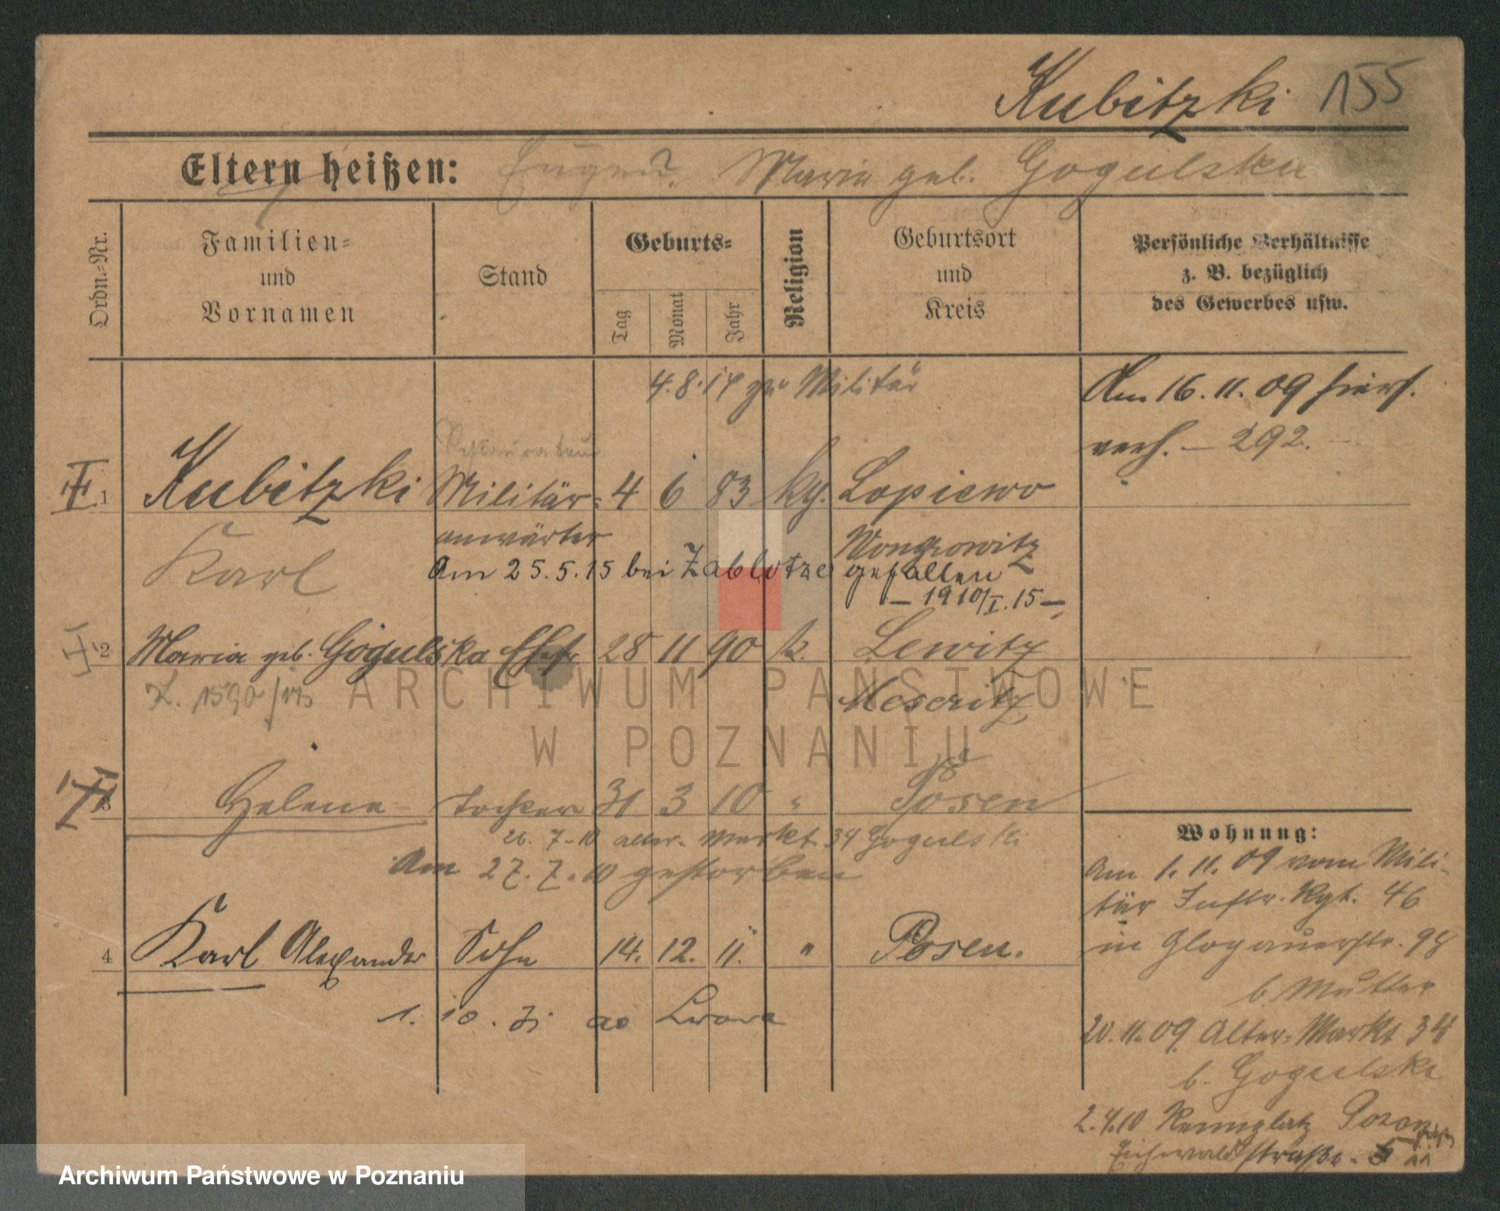 Kubitzki 155
Eltern heißen: Eugen? Marie geb. Gogulska
Ordn.-Nr.
Familien-
und
Vornamen
Stand
Geburts-
Tag
Monat
Jahr
Religion
Geburtsort
und
Kreis
Persönliche Verhältnisse
z. B. bezüglich
des Gewerbes usw.
4.8.14 zu Militär
Am 16.11.09 hiers.
verh. — 292.
1 Kubitzki Militär- 4 6 83 kg. Lopiewo
Karl anwärter Wongrowitz
Am 25.5.15 bei Zablotze gefallen
— 1910/I.15 —
2 Maria geb. Gogulska Ehefr 28 11 90 k. Lewitz
Z. 1590/ Meseritz
ARCHIWUM PAŃSTWOWE
W POZNANIU
3 Helene Tochter 31 3 10 " Posen
26.7.10 alter Markt 34 Gogulski
Am 27.7.10 gestorben
4 Karl Alexander Sohn 14. 12. 11. " Posen.
1. 10. do Lwowa
Wohnung:
Am 1.11.09 vom Mili-
tär Inftr. Rgt. 46
in Glogauerstr. 98
b Mutter
20.11.09 Alter-Markt 34
b. Gogulski
2.4.10 Posen
Eichwaldstraße
Archiwum Państwowe w Poznaniu